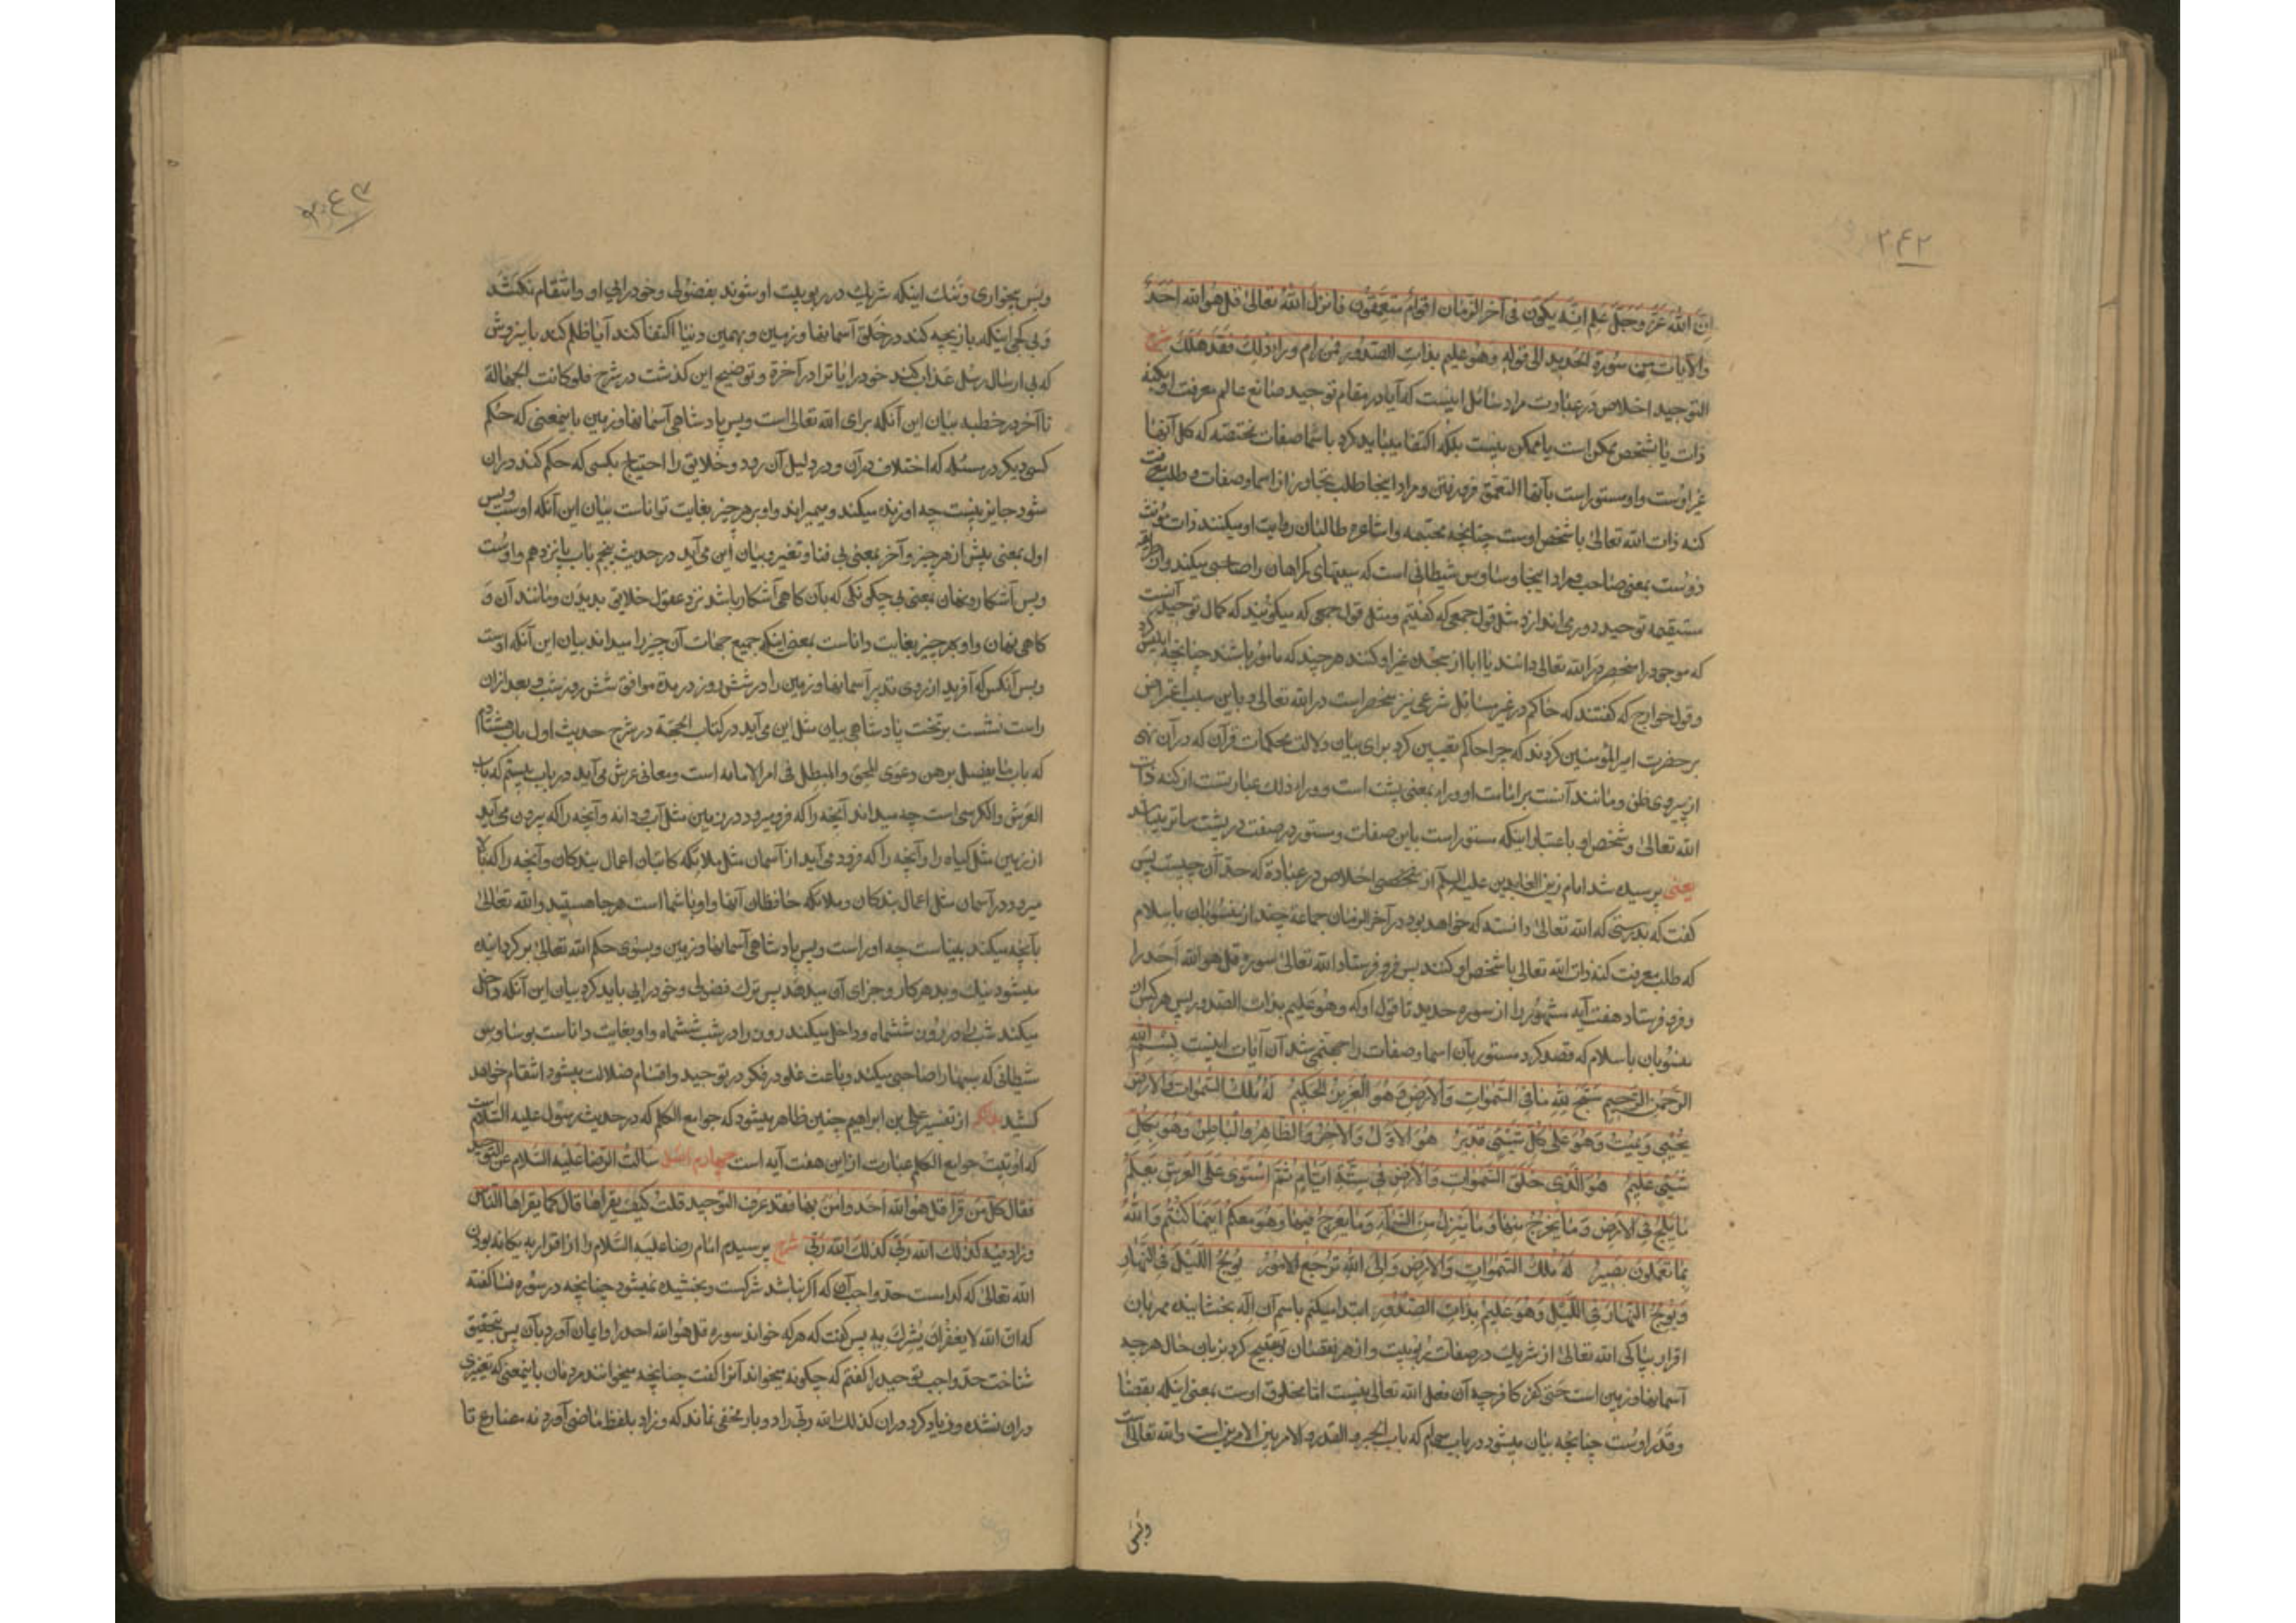 ۲۴۲
ان الله عز و جل علم انه یکون فی آخر الزمان اقوام متعمقون فانزل الله تعالی قل هو الله احد
والآیات من سورة الحدید الی قوله و هو علیم بذات الصدور فمن رام وراء ذلک فقد هلک شرح
التوحید اخلاص در عبادت مراد سائل اینست که آیا در مقام توحید صانع عالم معرفت او بکنه
ذات یا بشخص ممکن است یا ممکن نیست بلکه اکتفا میباید کرد باسما صفات مختصه که کل آنها
غیر اوست و او مستور است بآنها التعمق فرو رفتن و مراد اینجا طلب تجاوز از اسما و صفات و طلب معرفت
کنه ذات الله تعالی یا شخص اوست چنانچه مجتمعه و اشاعره طالبان رؤیت او میکنند ذات مؤنث
ذوست بمعنی صاحب و مراد اینجا وساوس شیطانی است که سینهای گمراهان را صاحبی میکنند و از طریقه
مستقیمه توحید دور می اندازد مثل قول جمعی که گفتیم و مثل قول جمعی که میگویند که کمال توحید آنست
که موجود را منحصر در الله تعالی دانند یا ابا از سجدن غیر او کنند هر چند که مامور باشند چنانچه ابلیس کرد
و قول خوارج که گفتند که حاکم در غیر مسائل شرعی نیز منحصر است در الله تعالی و باین سبب اعتراض
بر حضرت امیر المؤمنین کردند که چرا حاکم تعیین کرد برای بیان دلالت محکمات قرآن که در آن نهی
از پیروی ظن و مانند آنست بر امامت او وراء بمعنی پشت است و وراء ذلک عبارتست از کنه ذات
الله تعالی و شخص او باعتبار اینکه مستور است باین صفات و مستور در صفت در پشت ساتر میباشد
یعنی پرسیده شد امام زین العابدین علیه السلم از شخصی اخلاص در عبادة که حد آن چیست پس
گفت که بدرستی که الله تعالی دانسته که خواهد بود در آخر الزمان جماعة چند از منسوبان باسلام
که طلب معرفت کنه ذات الله تعالی یا شخص او کنند پس فرو فرستاد الله تعالی سوره قل هو الله احد را
و فرو فرستاد هفت آیه مشهور را از سوره حدید تا قول او که و هو علیم بذات الصدور پس هر کس از
منسوبان باسلام که قصد کرد مستور بآن اسما و صفات را جهنمی شد آن آیات اینست بسم الله
الرحمن الرحیم سبح لله ما فی السموات والارض و هو العزیز الحکیم له ملک السموات والارض
یحیی و یمیت و هو علی کل شیئ قدیر هو الاول والآخر والظاهر والباطن و هو بکل
شیئ علیم هو الذی خلق السموات والارض فی ستة ایام ثم استوی علی العرش یعلم
ما یلج فی الارض و ما یخرج منها و ما ینزل من السماء و ما یعرج فیها و هو معکم اینما کنتم والله
بما تعملون بصیر له ملک السموات والارض و الی الله ترجع الامور یولج اللیل فی النهار
و یولج النهار فی اللیل و هو علیم بذات الصدور ابتدا میکنم باسم آن اله بخشاینده مهربان
اقرار بپاکی الله تعالی از شریک در صفات ربوبیت و از هر نقصان و قبیح کرد بزبان حال هر چه
آسمانها و زمین است حتی کفر کافر چه آن فعل الله تعالی نیست اما مخلوق اوست بمعنی اینکه بقضا
و قدر اوست چنانچه بیان میشود در باب سیام که باب الجبر والقدر والامر بین الامرین است والله تعالی است
و بس
۲۴۳
و بس بیخواری و ننگ اینکه شریک در ربوبیت او شوند بفضولی و خودرایی او و انتقام نکشد
و بی کجی اینکه بازیچه کند در خلق آسمانها و زمین و بهمین دنیا اکتفا کند آیا ظلم کند باین روش
که بی ارسال رسل عذاب کند خودرایان را در آخرة و توضیح این گذشت در شرح فلو کانت الجهالة
تا آخر در خطبه بیان این آنکه برای الله تعالی است و بس پادشاهی آسمانها و زمین باینمعنی که حکم
کسی دیگر در مسئله که اختلاف در آن و در دلیل آن رود و خلایق را احتیاج بکسی که حکم کند در آن
شود جایز نیست چه او زنده میکند و میمیراند و او بر هر چیز بغایت تواناست بیان این آنکه اوست و بس
اول بمعنی پیش از هر چیز و آخر بمعنی بی فنا و تغیر و بیان این می آید در حدیث پنجم باب پانزدهم و اوست
و بس آشکار و نهان بمعنی بی چگونگی که بآن گاهی آشکار باشد نزد عقول خلایق بدیدن و مانند آن و
گاهی نهان و او بهر چیز بغایت داناست بمعنی اینکه جمیع جهات آن چیز را میداند بیان این آنکه اوست
و بس آنکس که آفرید از روی تدبیر آسمانها و زمین را در شش روز در مدة موافق شش روز شب و بعد از آن
راست نشست بر تخت پادشاهی بیان مثل این می آید در کتاب الحجة در شرح حدیث اول باب هشتادم
که باب ما یفصل به بین دعوی المحق والمبطل فی امر الامامه است و معانی عرش می آید در باب بیستم که باب
العرش والکرسی است چه میداند آنچه را که فرو میرود در زمین مثل آب و دانه و آنچه را که بیرون می آید
از زمین مثل گیاه را و آنچه را که فرود می آید از آسمان مثل ملائکه کاتبان اعمال بندگان و آنچه را که بالا
میرود در آسمان مثل اعمال بندگان و ملائکه حافظان آنها و او با شما است هر جا هستید والله تعالی
بآنچه میکنید بیناست چه او راست و بس پادشاهی آسمانها و زمین و بسوی حکم الله تعالی برگردانیده
میشود نیک و بد هر کار و جزای آن میدهد پس ترک فضولی و خودرایی باید کرد بیان این آنکه داخل
میکند شب را در روز ششماه و داخل میکند روز را در شب ششماه و او بغایت داناست بوساوس
شیطانی که سینها را صاحبی میکند و باعث غلو در فکر در توحید و اقسام ضلالت میشود انتقام خواهد
کشید از تفسیر علی بن ابراهیم چنین ظاهر میشود که جوامع الکلم که در حدیث رسول علیه السلام است
که اوتیت جوامع الکلم عبارت از این هفت آیه است چهارم اصل سالت الرضا علیه السلام عن التوحید
فقال کل من قرأ قل هو الله احد و امن بها فقد عرف التوحید قلت کیف یقرأها قال کما یقرأها الناس
و زاد فیه کذلک الله ربی کذلک الله ربی شرح پرسیدم امام رضا علیه السلام را از اقرار به یگانه بودن
الله تعالی که کدام است حد واجب آن که اگر نباشد شرکست و بخشیده نمیشود چنانچه در سوره نسا گفته
که ان الله لا یغفر ان یشرک به پس گفت که هر که خواند سوره قل هو الله احد را و ایمان آورد بآن پس بتحقیق
شناخت حد واجب توحید را گفتم که چگونه میخواند آنرا گفت چنانچه میخوانند مردمان باینمعنی که تغییری
در آن نشده و زیاد کرد در آن کذلک الله ربی را دو بار مخفی نماند که و زاد بلفظ ماضی آورد نه مضارع تا